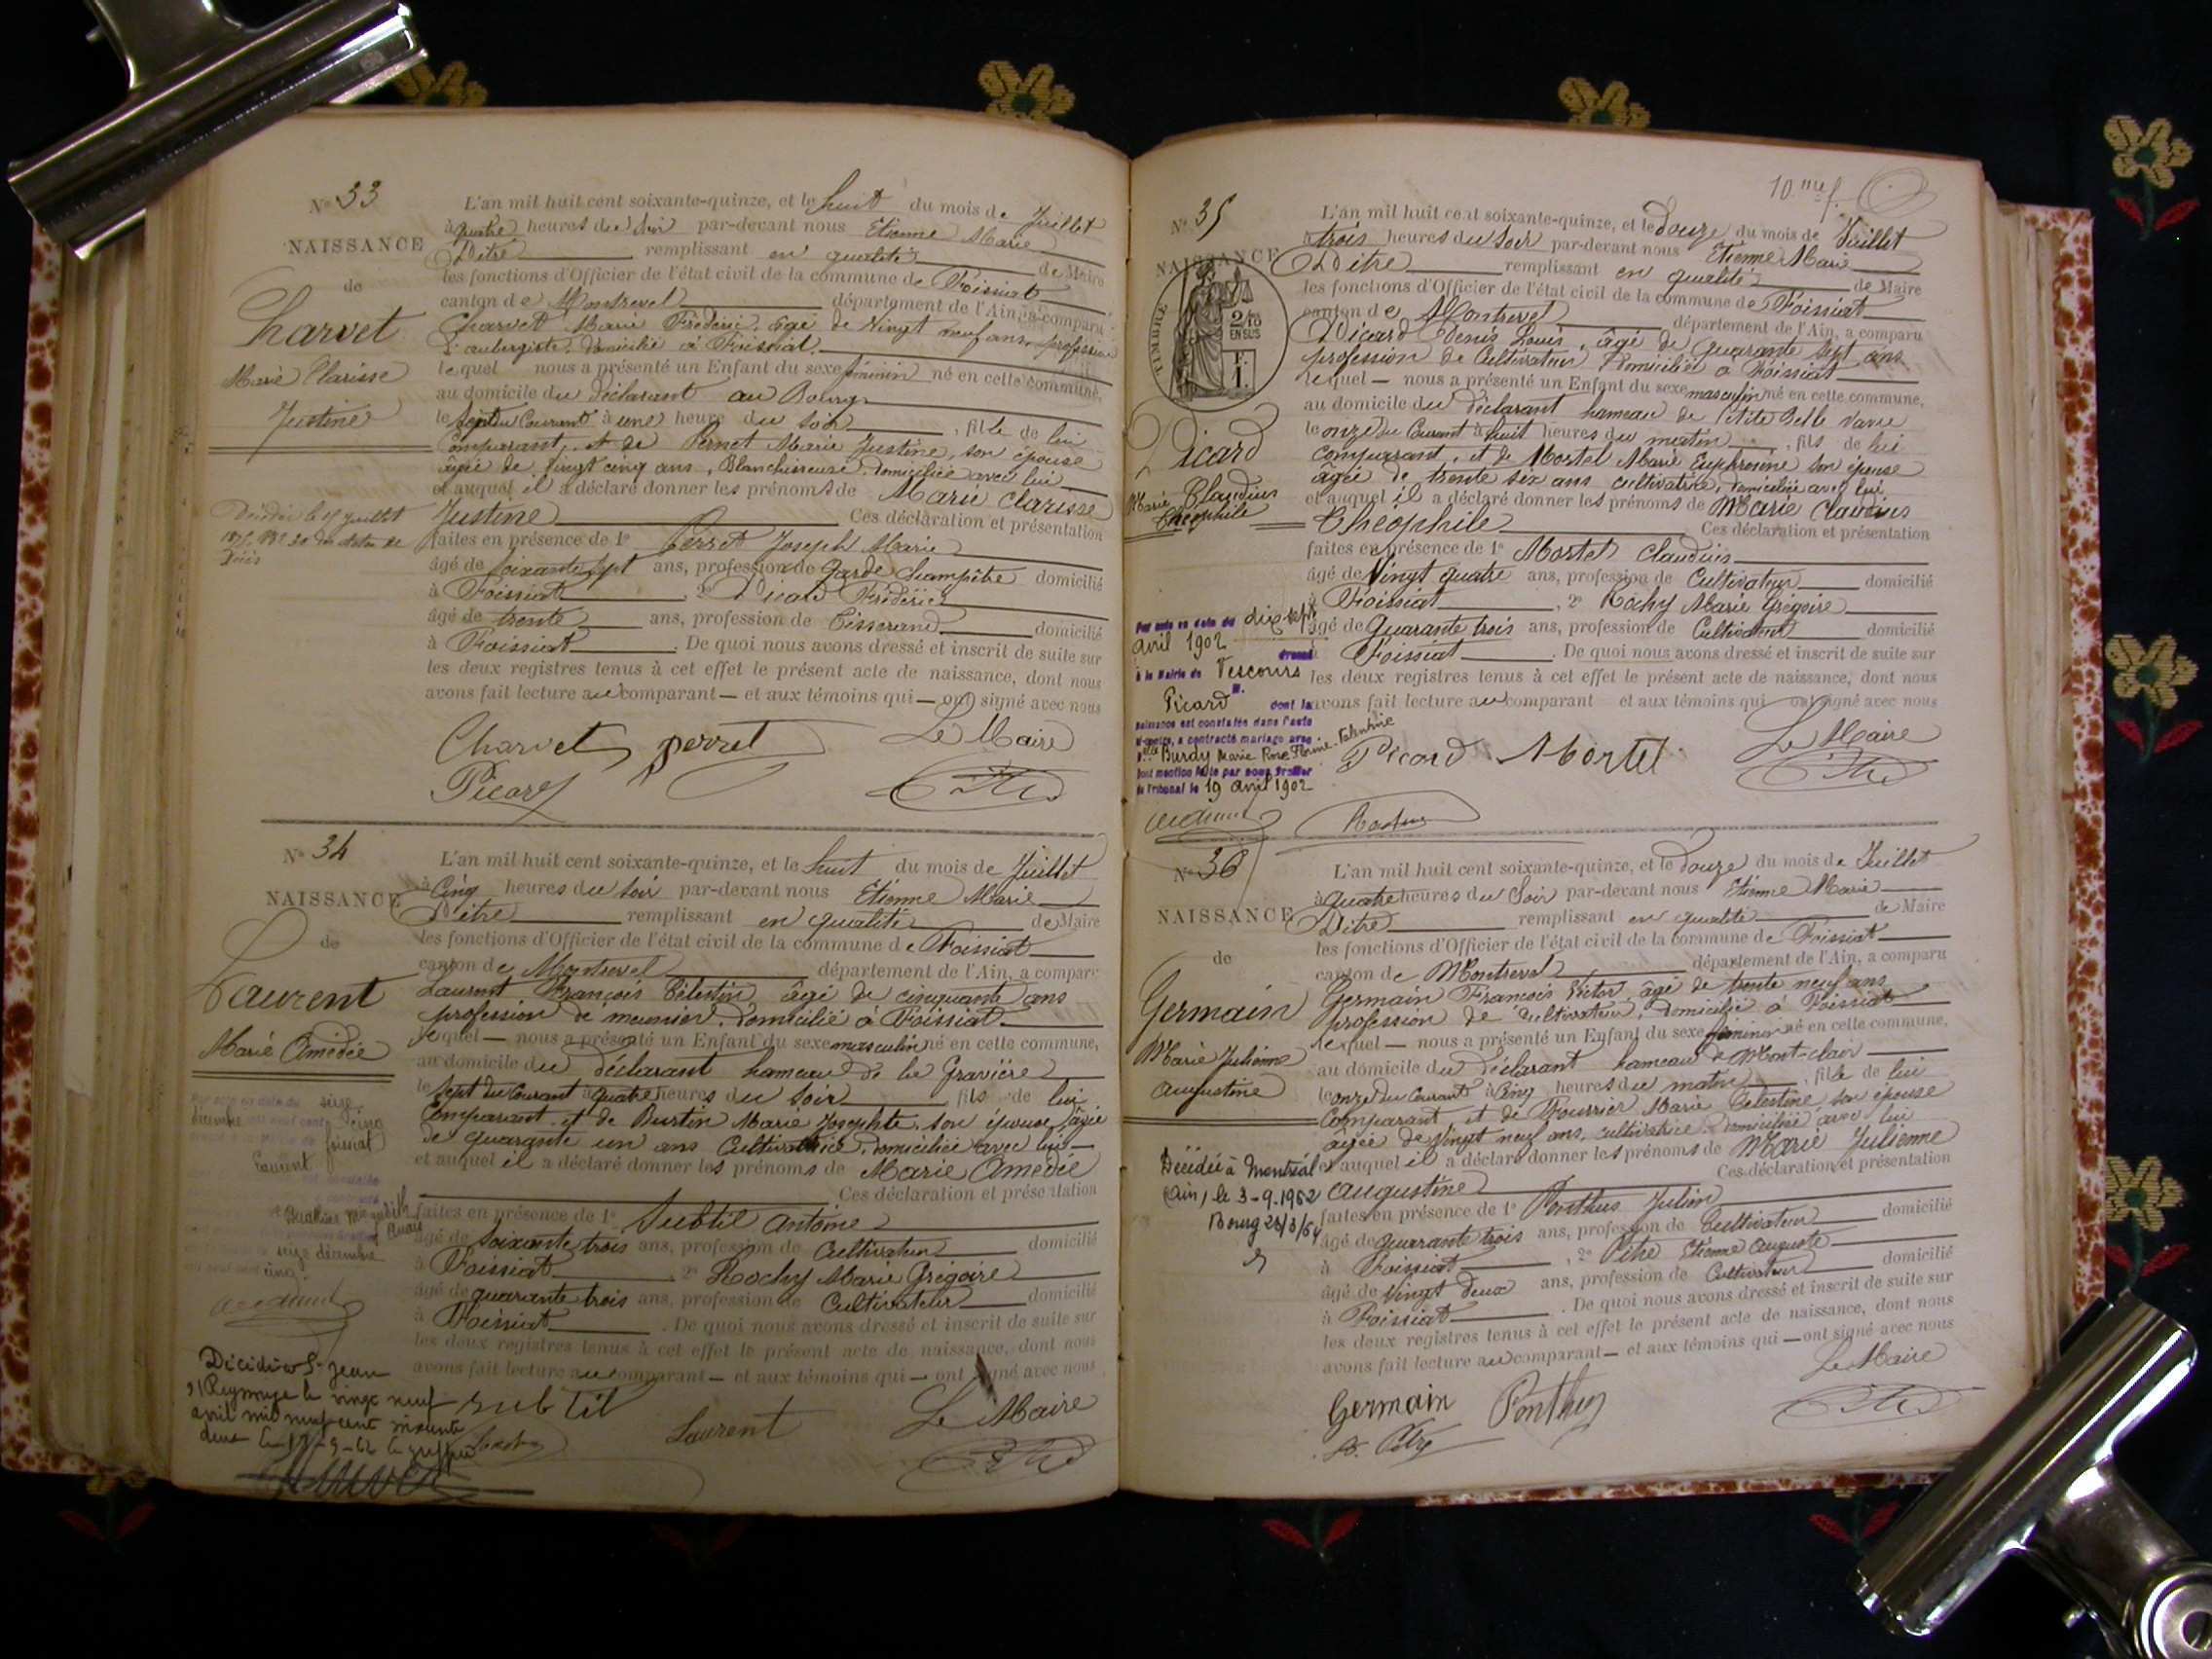 Nº 33
NAISSANCE
de
Charvet
Marie Clarisse
Justine
Décédée le juillet
L'an mil huit cent soixante-quinze, et le huit du mois de Juillet
à quatre heures du Soir par-devant nous Etienne Marie
Pitre remplissant en qualité de Maire
les fonctions d'Officier de l'état civil de la commune de Foissiat
canton de Montrevel département de l'Ain, a comparu
Charvet Marie Frédéric, âgé de Vingt neuf ans, profession
d'aubergiste, domicilié à Foissiat
lequel nous a présenté un Enfant du sexe féminin né en cette commune,
au domicile du déclarant au Bourg
le Sept du Courant à une heure du soir , fille de lui
Comparant, et de Pernet Marie Justine, son épouse
âgée de vingt cinq ans, Blanchisseuse, domiciliée avec lui
et auquel il a déclaré donner les prénoms de Marie Clarisse
Justine Ces déclaration et présentation
faites en présence de 1º Perret Joseph Marie
âgé de soixante sept ans, profession de garde champêtre domicilié
à Foissiat , 2º Picard Frédéric
âgé de trente ans, profession de Tisserand domicilié
à Foissiat . De quoi nous avons dressé et inscrit de suite sur
les deux registres tenus à cet effet le présent acte de naissance, dont nous
avons fait lecture au comparant — et aux témoins qui — ont signé avec nous
Charvet perret Le Maire
Picard
Nº 34
NAISSANCE
de
Laurent
Marie Amédée
seize
décembre cinq
foissiat
Laurent
seize décembre
cinq
Décédé à St Jean
s/ Reyssouze le vingt neuf
avril mil neuf cent soixante
deux
L'an mil huit cent soixante-quinze, et le huit du mois de Juillet
à Cinq heures du Soir par-devant nous Etienne Marie
Pitre remplissant en qualité de Maire
les fonctions d'Officier de l'état civil de la commune de Foissiat
canton de Montrevel département de l'Ain, a comparu
Laurent François Célestin âgé de cinquante ans
profession de meunier, domicilié à Foissiat
lequel — nous a présenté un Enfant du sexe masculin né en cette commune,
au domicile du déclarant hameau de la Gravière
le Sept du Courant à quatre heures du soir fils de lui
Comparant, et de Burtin Marie Josephte, son épouse âgée
de quarante un ans Cultivatrice, domiciliée avec lui
et auquel il a déclaré donner les prénoms de Marie Amédée
Ces déclaration et présentation
faites en présence de 1º Subtil Antoine
âgé de soixante trois ans, profession de Cultivateur domicilié
à Foissiat 2º Rochy Marie Grégoire
âgé de quarante trois ans, profession de Cultivateur domicilié
à Foissiat . De quoi nous avons dressé et inscrit de suite sur
les deux registres tenus à cet effet le présent acte de naissance, dont nous
avons fait lecture au comparant — et aux témoins qui — ont signé avec nous
subtil Laurent Le Maire
10.me f.
Nº 35
NAISSANCE
TIMBRE
2/10
EN SUS
Picard
Marie Claudius
Théophile
Par acte en date du dix sept
avril 1902
dressé
à la Mairie de Vescours
M.
Picard dont la
naissance est constatée dans l'acte
ci-contre, a contracté mariage avec
Mlle Burdy Marie Rose Florine-Valentine
Dont mention faite par nous greffier
du Tribunal le 19 avril 1902
L'an mil huit cent soixante-quinze, et le douze du mois de Juillet
à trois heures du Soir par-devant nous Etienne Marie
Pitre remplissant en qualité de Maire
les fonctions d'Officier de l'état civil de la commune de Foissiat
canton de Montrevel département de l'Ain, a comparu
Picard Denis Louis, âgé de quarante sept ans
profession de Cultivateur Domicilié à Foissiat
lequel — nous a présenté un Enfant du sexe masculin né en cette commune,
au domicile du déclarant hameau de Petite Belle vavre
le onze du Courant à huit heures du matin , fils de lui
comparant, et de Mortel Marie Euphrosine son épouse
âgée de trente six ans cultivatrice, domiciliée avec lui
et auquel il a déclaré donner les prénoms de Marie Claudius
Théophile Ces déclaration et présentation
faites en présence de 1º Mortel Claudius
âgé de Vingt quatre ans, profession de Cultivateur domicilié
à Foissiat , 2º Rochy Marie Grégoire
âgé de Quarante trois ans, profession de Cultivateur domicilié
à Foissiat . De quoi nous avons dressé et inscrit de suite sur
les deux registres tenus à cet effet le présent acte de naissance, dont nous
avons fait lecture au comparant et aux témoins qui ont signé avec nous
Picard Mortel Le Maire
Nº 36
NAISSANCE
de
Germain
Marie Julienne
Augustine
Décédée à Montréal
(Ain) le 3-9-1962
Bourg
L'an mil huit cent soixante-quinze, et le douze du mois de Juillet
à quatre heures du Soir par-devant nous Etienne Marie
Pitre remplissant en qualité de Maire
les fonctions d'Officier de l'état civil de la commune de Foissiat
canton de Montrevel département de l'Ain, a comparu
Germain François Victor, âgé de trente neuf ans
profession de cultivateur, Domicilié à Foissiat
lequel — nous a présenté un Enfant du sexe féminin né en cette commune,
au domicile du déclarant hameau de Mont-clair
le onze du Courant à Cinq heures du matin , fille de lui
Comparant et de Fourrier Marie Célestine son épouse
âgée de Vingt neuf ans, cultivatrice, domiciliée avec lui
et auquel il a déclaré donner les prénoms de Marie Julienne
Augustine Ces déclaration et présentation
faites en présence de 1º Ponthus Julien
âgé de quarante trois ans, profession de Cultivateur domicilié
à Foissiat , 2º Pitre Etienne Auguste
âgé de Vingt deux ans, profession de Cultivateur domicilié
à Foissiat . De quoi nous avons dressé et inscrit de suite sur
les deux registres tenus à cet effet le présent acte de naissance, dont nous
avons fait lecture au comparant — et aux témoins qui — ont signé avec nous
Le Maire
Germain Ponthus